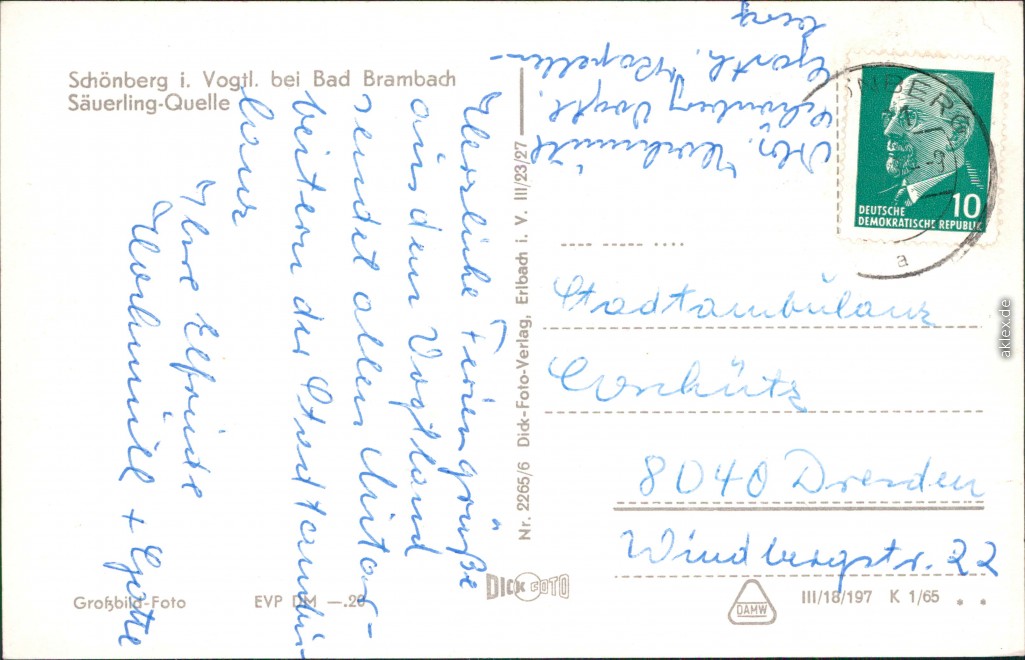 Schönberg i. Vogtl. bei Bad Brambach
Säuerling-Quelle
Herzliche Feriengrüße
aus dem Vogtland
sendet allen Mitar-
beitern der Stadtambu-
lanz
Ihre Elfriede
Wohmill + Gatte
Abs. Wohmill
Schönberg Vogtl.
Gasth. Kapellen-
berg
NBERG
a
10
DEUTSCHE
DEMOKRATISCHE REPUBLIK
Stadtambulanz
Coschütz
8040 Dresden
Windbergstr. 22
Nr. 2265/6 Dick-Foto-Verlag, Erlbach i. V. III/23/27
DICK FOTO
Großbild-Foto EVP DM —.20
DAMW
III/18/197 K 1/65
aklex.de